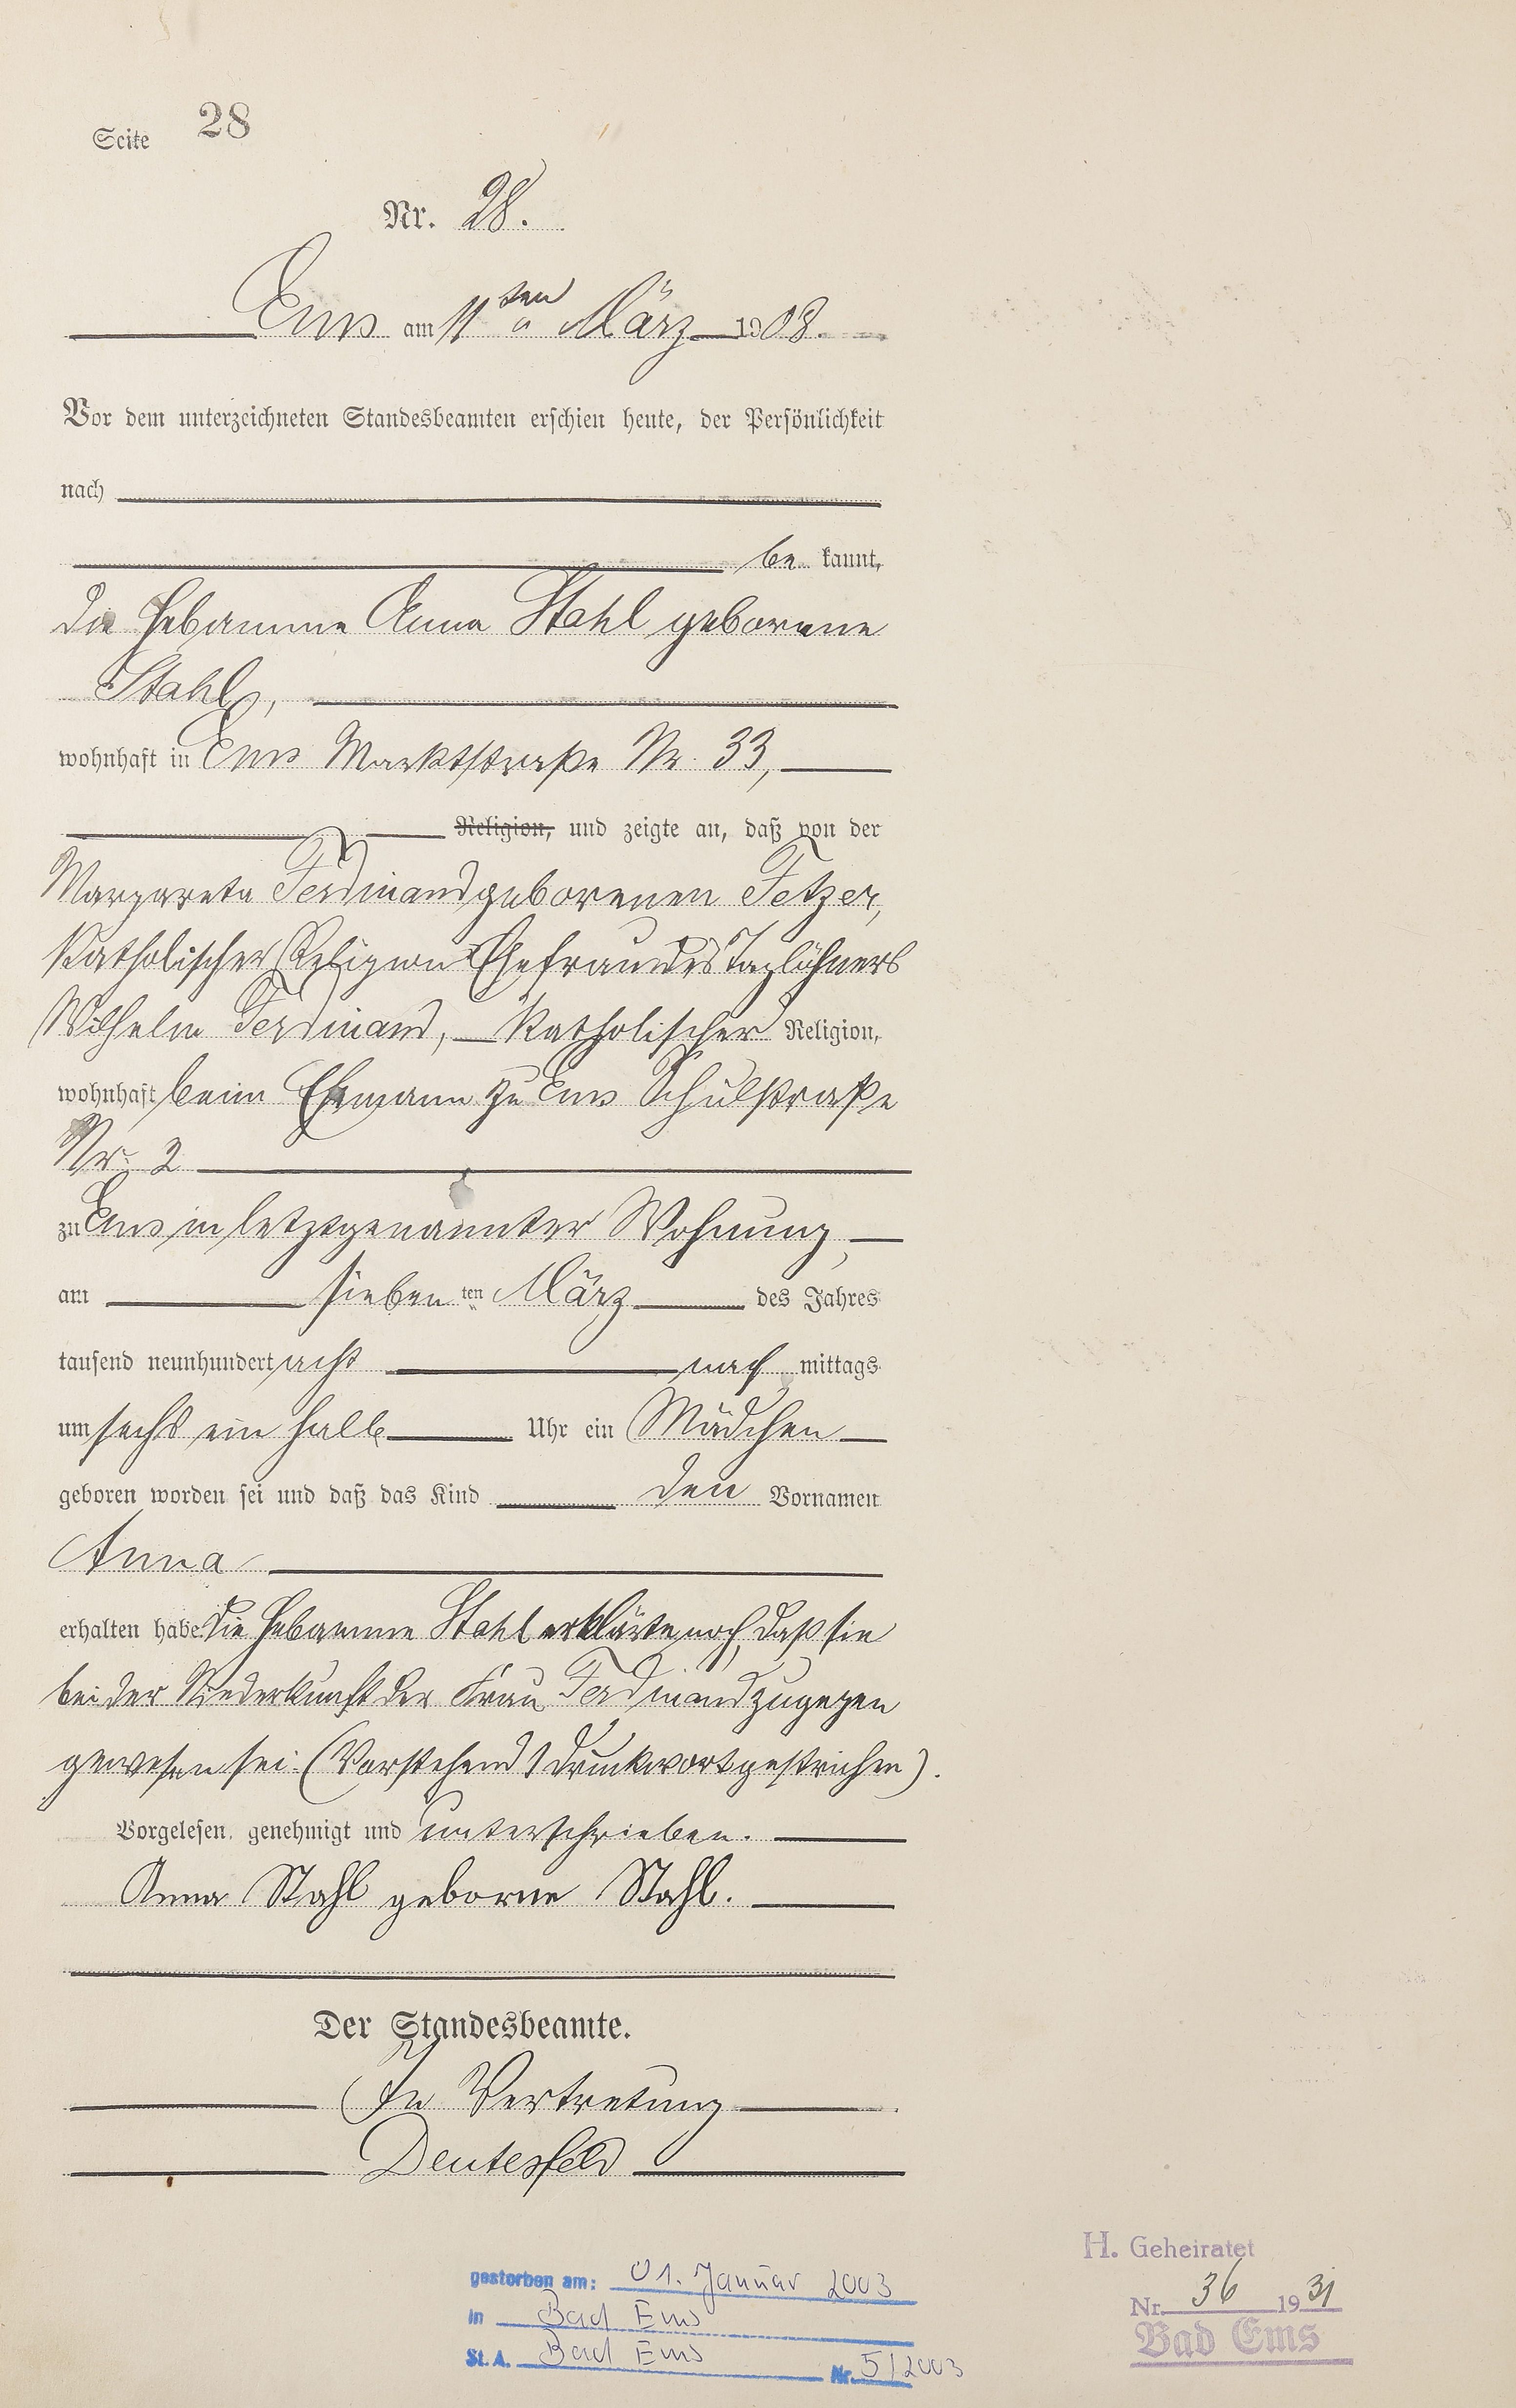 Seite 28
Nr. 28.
Ems am 11ten März 1908.
Vor dem unterzeichneten Standesbeamten erschien heute, der Persönlichkeit
nach
be kannt,
die Hebamme Anna Stahl geborene
Stahl,
wohnhaft in Ems Marktstraße Nr. 33,
Religion, und zeigte an, daß von der
Margareta Ferdinand geborenen Fetzer,
katholischer Religion Ehefrau des Taglöhners
Wilhelm Ferdinand, katholischer Religion,
wohnhaft beim Ehemann zu Ems Schulstraße
Nr. 2
zu Ems in letztgenannter Wohnung,
am siebenten März des Jahres
tausend neunhundert acht nach mittags
um sechs ein halb Uhr ein Mädchen
geboren worden sei und daß das Kind den Vornamen
Anna
erhalten habe. Die Hebamme Stahl erklärte noch, daß sie
bei der Niederkunft der Frau Ferdinand zugegen
gewesen sei. (Vorstehend 1 Druckwort gestrichen).
Vorgelesen, genehmigt und unterschrieben.
Anna Stahl geborne Stahl.
Der Standesbeamte.
In Vertretung
Deutesfeld
gestorben am: 01. Januar 2003
in Bad Ems
St. A. Bad Ems Nr. 5/2003
H. Geheiratet
Nr. 36 1931
Bad Ems